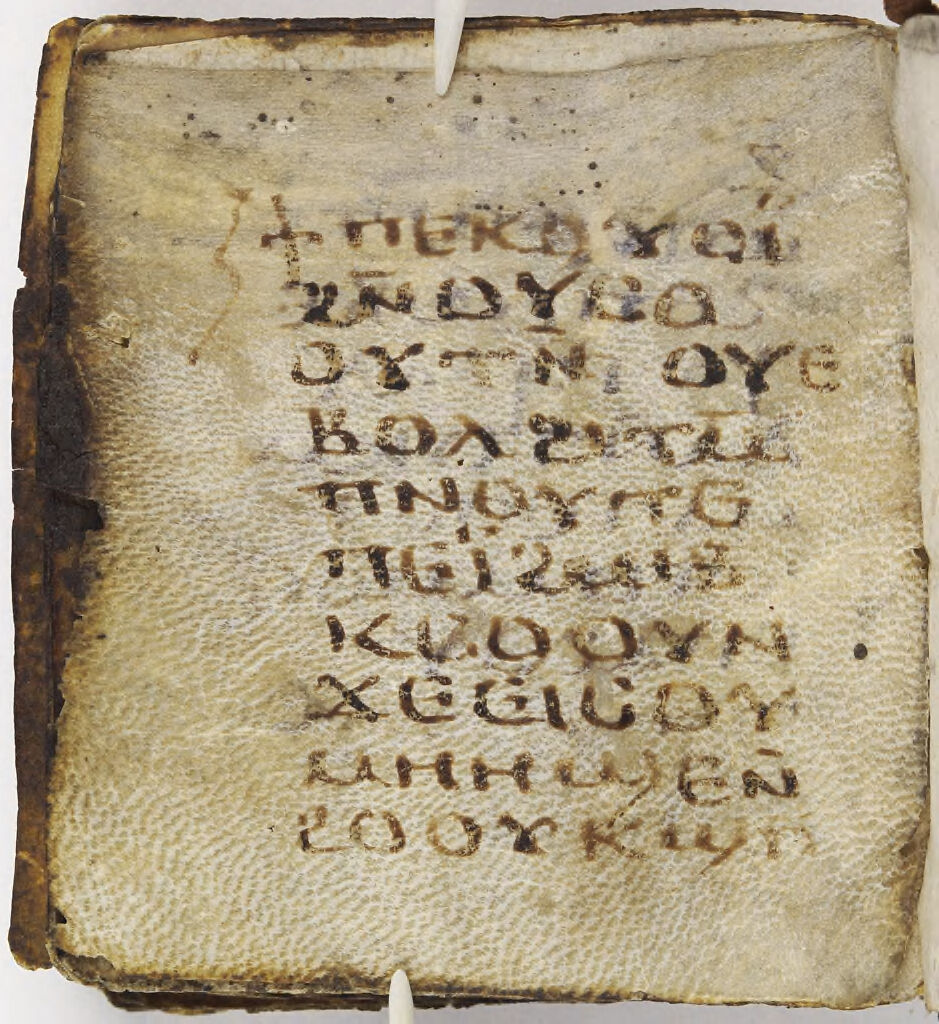 ϯⲡⲉⲕⲟⲩⲟⲓ̈
ϩⲛ̄ⲟⲩⲥⲟ
ⲟⲩⲧⲛ ⲟⲩⲉ
ⲃⲟⲗϩⲓⲧⲙ̄
ⲡⲛⲟⲩⲧⲉ
ⲡⲉⲓ̈ϩⲱⲃ
ⲕⲥⲟⲟⲩⲛ
ϫⲉⲉⲓⲥⲟⲩ
ⲙⲏⲏϣⲉⲛ̄
ϩⲟⲟⲩⲕϣⲡ